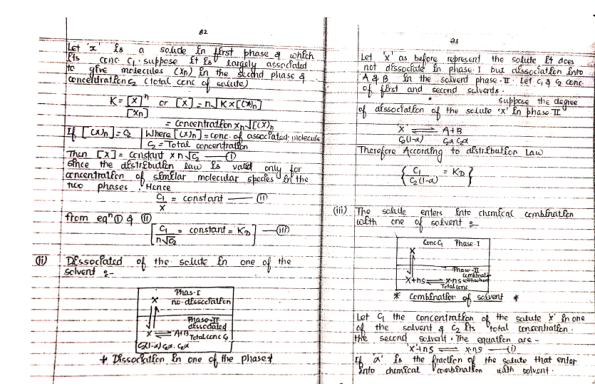 22
Let 'x' is a solute in first phase of which
its conc C₁. suppose it is largely associated
to give molecules (Xn) in the second phase of
concentration C₂ (total conc of solute)
K = [X]ⁿ or [X] = n√K×[(X)n]
[Xn]
= concentration x n√[(X)n]
If [(X)n] = C₂ | Where [(X)n] = conc. of associated molecule
C₂ = Total concentration
Then [X] = Constant x n√C₂ — (I)
Since the distribution law is valid only for
concentration of similar molecular species in the
two phases. Hence
C₁ = constant — (II)
X
from eqⁿ (I) & (II)
[ C₁ = constant = K_D ] — (III)
n√C₂
(ii) Dissociated of the solute in one of the
solvent :-
Phas-I
X no-dissociation
Phase-II
dissociated
X ⇌ A+B Total conc C₂
C₂(1-α) C₂α C₂α
* Dissociation in one of the phase *
23
Let 'X' as before represent the solute it does
not dissociate in phase-I but dissociation into
A & B in the solvent phase-II. Let C₁ & C₂ conc
of first and second solvents.
suppose the degree
of dissociation of the solute 'X' in phase II
X ⇌ A+B
C₂(1-α) C₂α C₂α
Therefore According to distribution Law
{ C₁ = K_D }
C₂(1-α)
(iii) The solute enters into chemical combination
with one of solvent :-
Conc C₁ Phase-I
X
Phase-II
X+nS ⇌ X·nS
Total conc
* Combination of solvent *
Let C₁ the concentration of the solute 'X' in one
of the solvent & C₂ its total concentration.
the second solvent. The equation are -
X+nS ⇌ X·nS — (I)
If 'α' is the fraction of the solute that enter
into chemical combination with solvent.